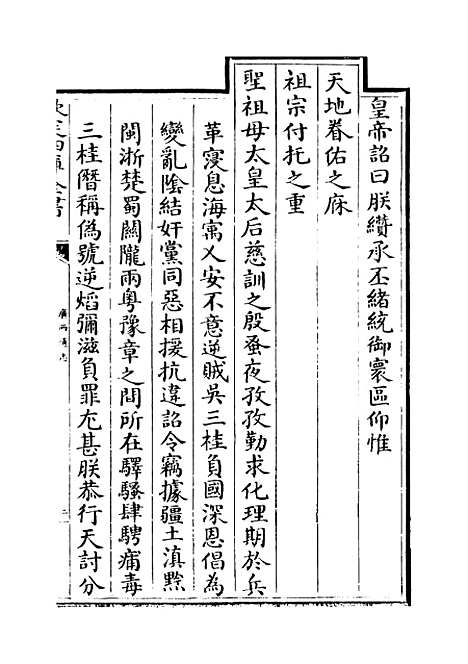 皇帝詔曰朕纘承丕緒統御寰區仰惟
天地眷佑之庥
祖宗付托之重
聖祖母太皇太后慈訓之殷蚤夜孜孜勤求化理期於兵
革寖息海㝢乂安不意逆賊吳三桂負國深恩倡為
變亂陰結奸黨同惡相援抗違詔令竊據疆土滇黔
閩浙楚蜀關隴兩粵豫章之間所在驛騷肆騁痡毒
三桂僭稱偽號逆熖彌滋負罪尤甚朕恭行天討分
廣西通志